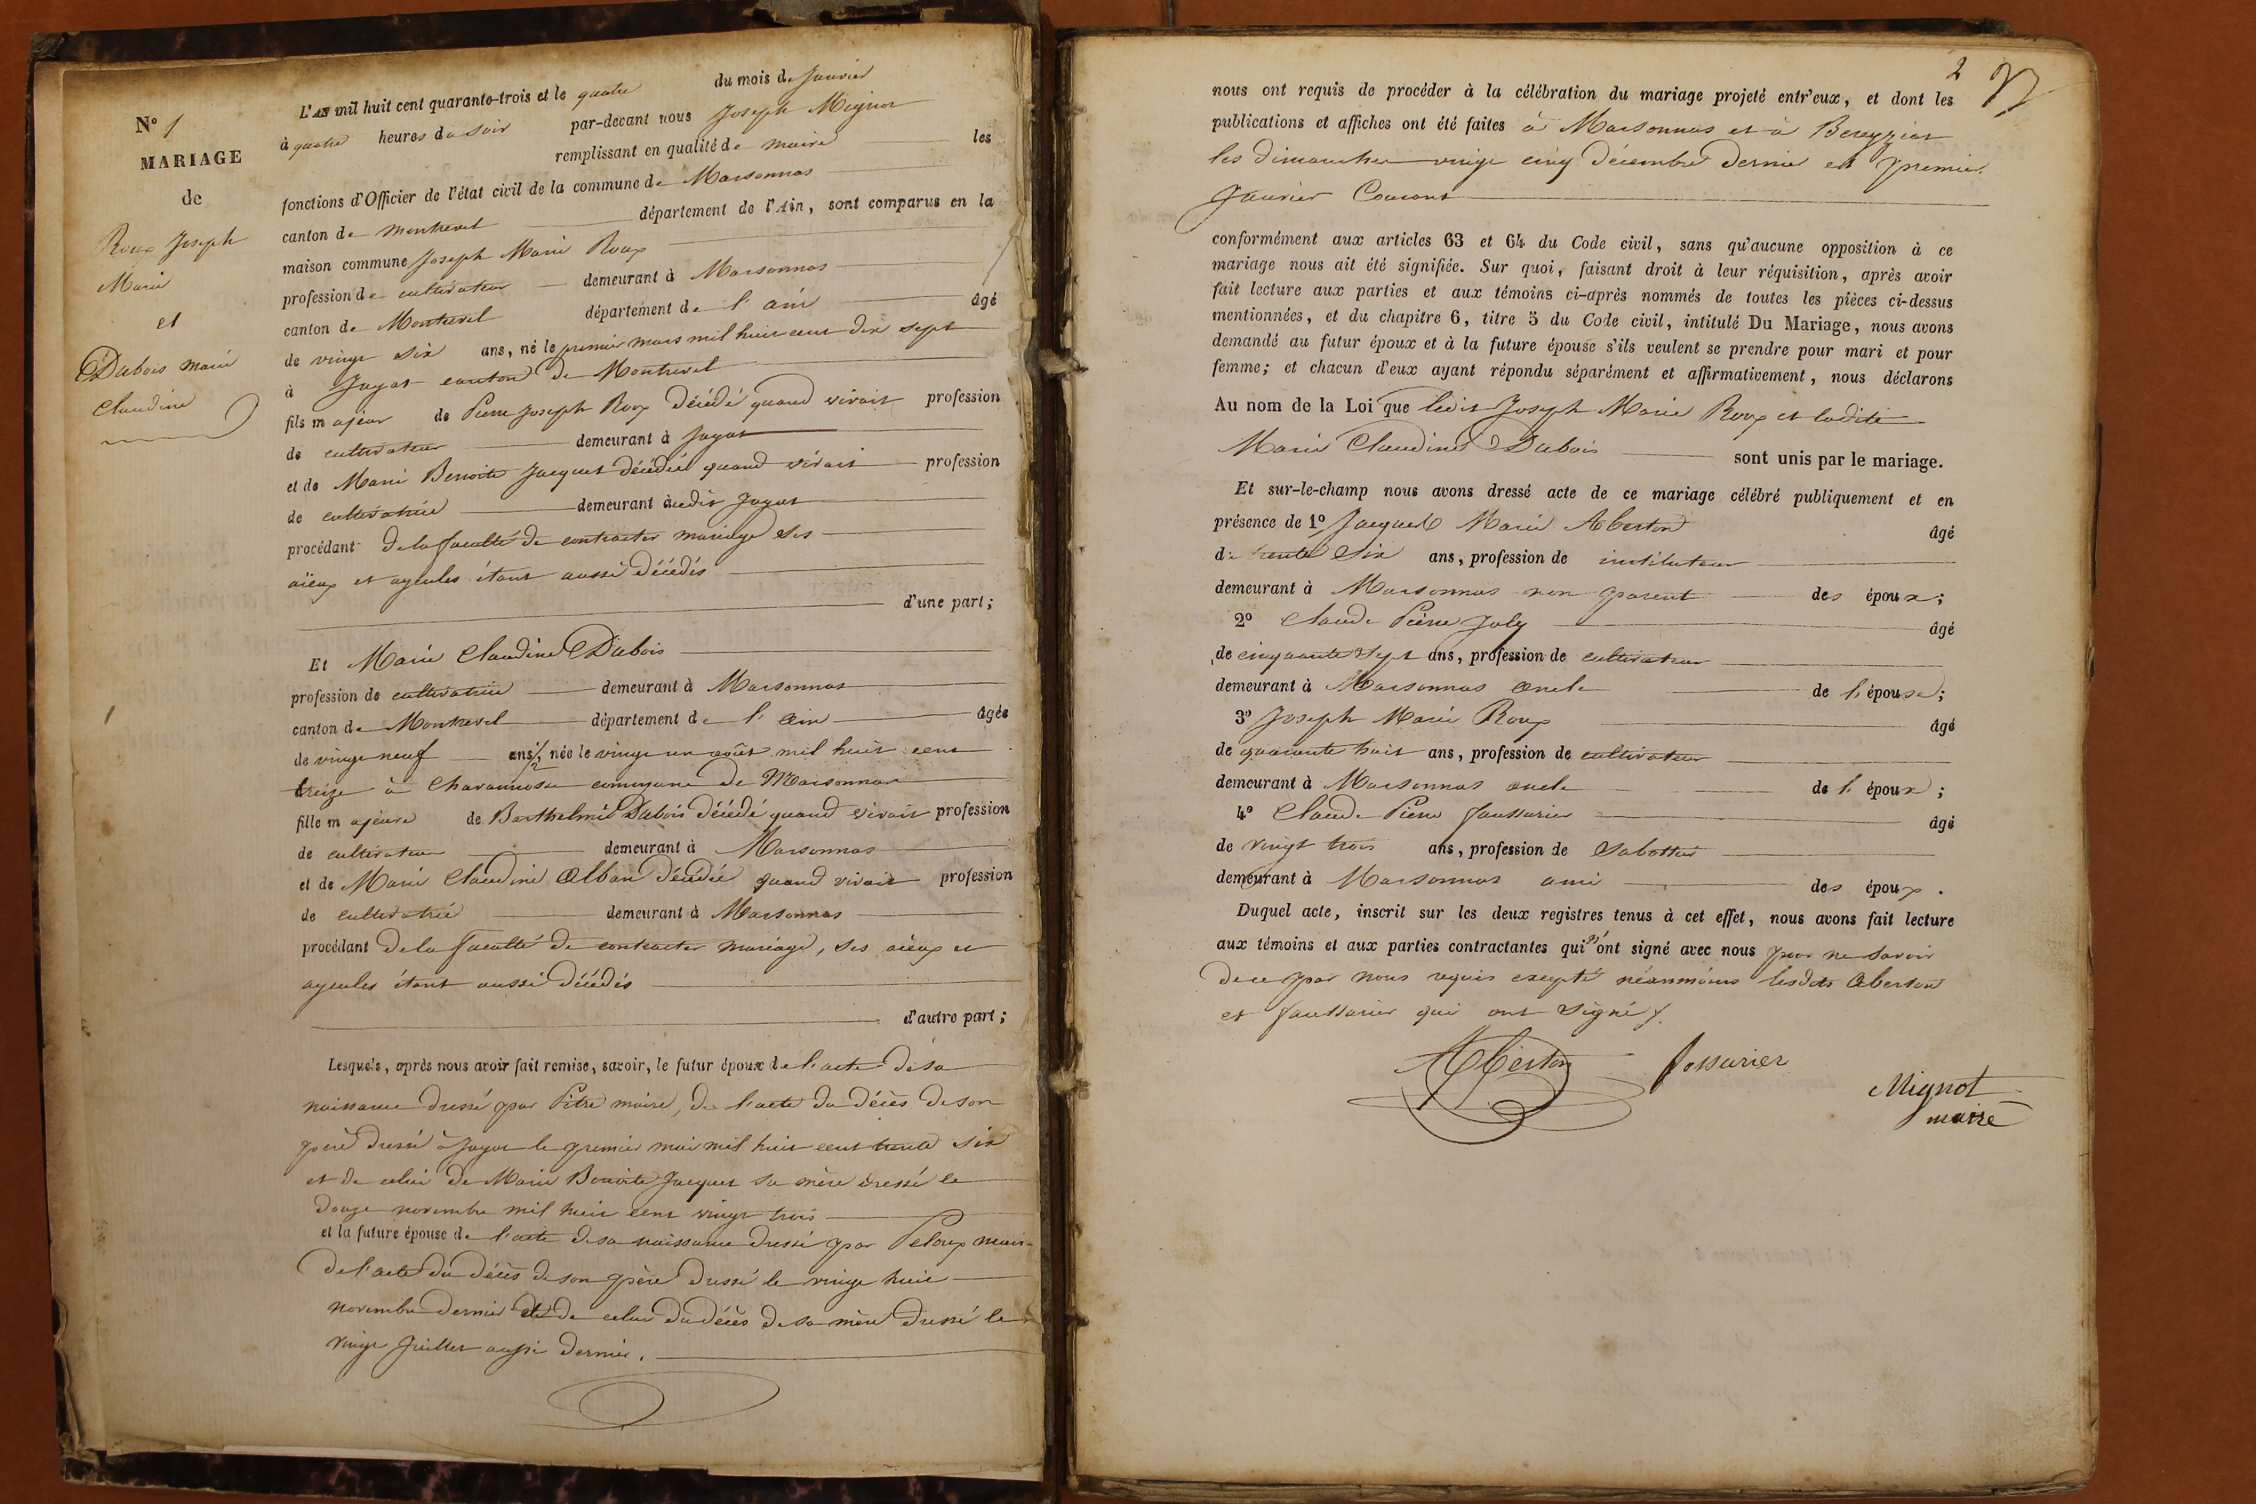 N° 1
MARIAGE
de
Roux Joseph
Marie
et
Dubois marie
Claudine
L'AN mil huit cent quarante-trois et le quatre du mois de Janvier
à quatre heures du soir par-devant nous Joseph Mignot
remplissant en qualité de maire les
fonctions d'Officier de l'état civil de la commune de Marsonnas
canton de montrevel département de l'Ain, sont comparus en la
maison commune Joseph Marie Roux
profession de cultivateur demeurant à Marsonnas
canton de Montrevel département de l'ain âgé
de vingt six ans, né le premier mars mil huit cent dix sept
à Jayat canton de Montrevel
fils majeur de Pierre Joseph Roux décédé quand vivait profession
de cultivateur demeurant à Jayat
et de Marie Benoite Jacquet décédée quand vivait profession
de cultivatrice demeurant audit Jayat
procédant de la faculté de contracter mariage ses
aïeux et ayeules étant aussi décédés
d'une part;
Et Marie Claudine Dubois
profession de cultivatrice demeurant à Marsonnas
canton de Montrevel département de l'ain âgée
de vingt neuf ans 1/2, née le vingt un août mil huit cent
treize à Chavannosse commune de Marsonnas
fille majeure de Barthelmi Dubois décédé quand vivait profession
de cultivateur demeurant à Marsonnas
et de Marie Claudine Alban décédée quand vivait profession
de cultivatrice demeurant à Marsonnas
procédant de la faculté de contracter mariage, ses aïeux et
ayeules étant aussi décédés
d'autre part;
Lesquels, après nous avoir fait remise, savoir, le futur époux de l'acte de sa
naissance dressé par Pitre maire, de l'acte du décès de son
père dressé à Jayat le premier mai mil huit cent trente six
et de celui de Marie Benoite Jacquet sa mère dressé le
douze novembre mil huit cent vingt trois
et la future épouse de l'acte de sa naissance dressé par Peloux maire
de l'acte du décès de son père dressé le vingt huit
novembre dernier et de celui du décès de sa mère dressé le
vingt Juillet aussi dernier.
2
nous ont requis de procéder à la célébration du mariage projeté entr'eux, et dont les
publications et affiches ont été faites à Marsonnas et à Bereyziat
les dimanches vingt cinq décembre dernier et premier
Janvier Courant
conformément aux articles 63 et 64 du Code civil, sans qu'aucune opposition à ce
mariage nous ait été signifiée. Sur quoi, faisant droit à leur réquisition, après avoir
fait lecture aux parties et aux témoins ci-après nommés de toutes les pièces ci-dessus
mentionnées, et du chapitre 6, titre 5 du Code civil, intitulé Du Mariage, nous avons
demandé au futur époux et à la future épouse s'ils veulent se prendre pour mari et pour
femme; et chacun d'eux ayant répondu séparément et affirmativement, nous déclarons
Au nom de la Loi que ledit Joseph Marie Roux et ladite
Marie Claudine Dubois sont unis par le mariage.
Et sur-le-champ nous avons dressé acte de ce mariage célébré publiquement et en
présence de 1° Jacques Marie Alberton âgé
de trente six ans, profession de instituteur
demeurant à Marsonnas non parent des époux;
2° Claude Pierre Joly âgé
de cinquante sept ans, profession de cultivateur
demeurant à Marsonnas oncle de l'épouse;
3° Joseph Marie Roux âgé
de quarante huit ans, profession de cultivateur
demeurant à Marsonnas oncle de l'époux;
4° Claude Pierre faussurier âgé
de vingt trois ans, profession de Sabottier
demeurant à Marsonnas ami des époux.
Duquel acte, inscrit sur les deux registres tenus à cet effet, nous avons fait lecture
aux témoins et aux parties contractantes qui n'ont signé avec nous pour ne savoir
de ce par nous requis excepté néanmoins lesdits Alberton
et faussurier qui ont signé
Alberton fossurier
Mignot
maire